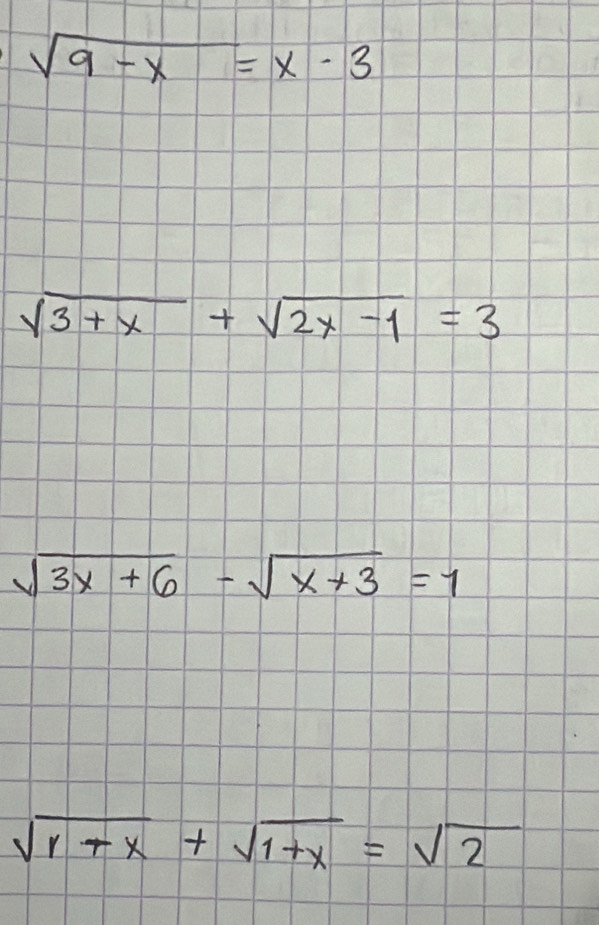 √(9 - x) = x - 3
√(3 + x) + √(2x - 1) = 3
√(3x + 6) - √(x + 3) = 1
√(1 + x) + √(1 + x) = √2